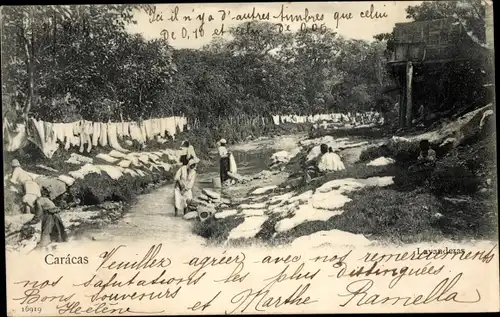 Ici il n'y a d'autres timbres que celui
De 0,10 et celui de 0.05
Carácas
Lavanderas
Veuillez agréer avec nos remerciements
nos salutations les plus distinguées
Bons souvenirs et Marthe Ramella
Hélène
16919